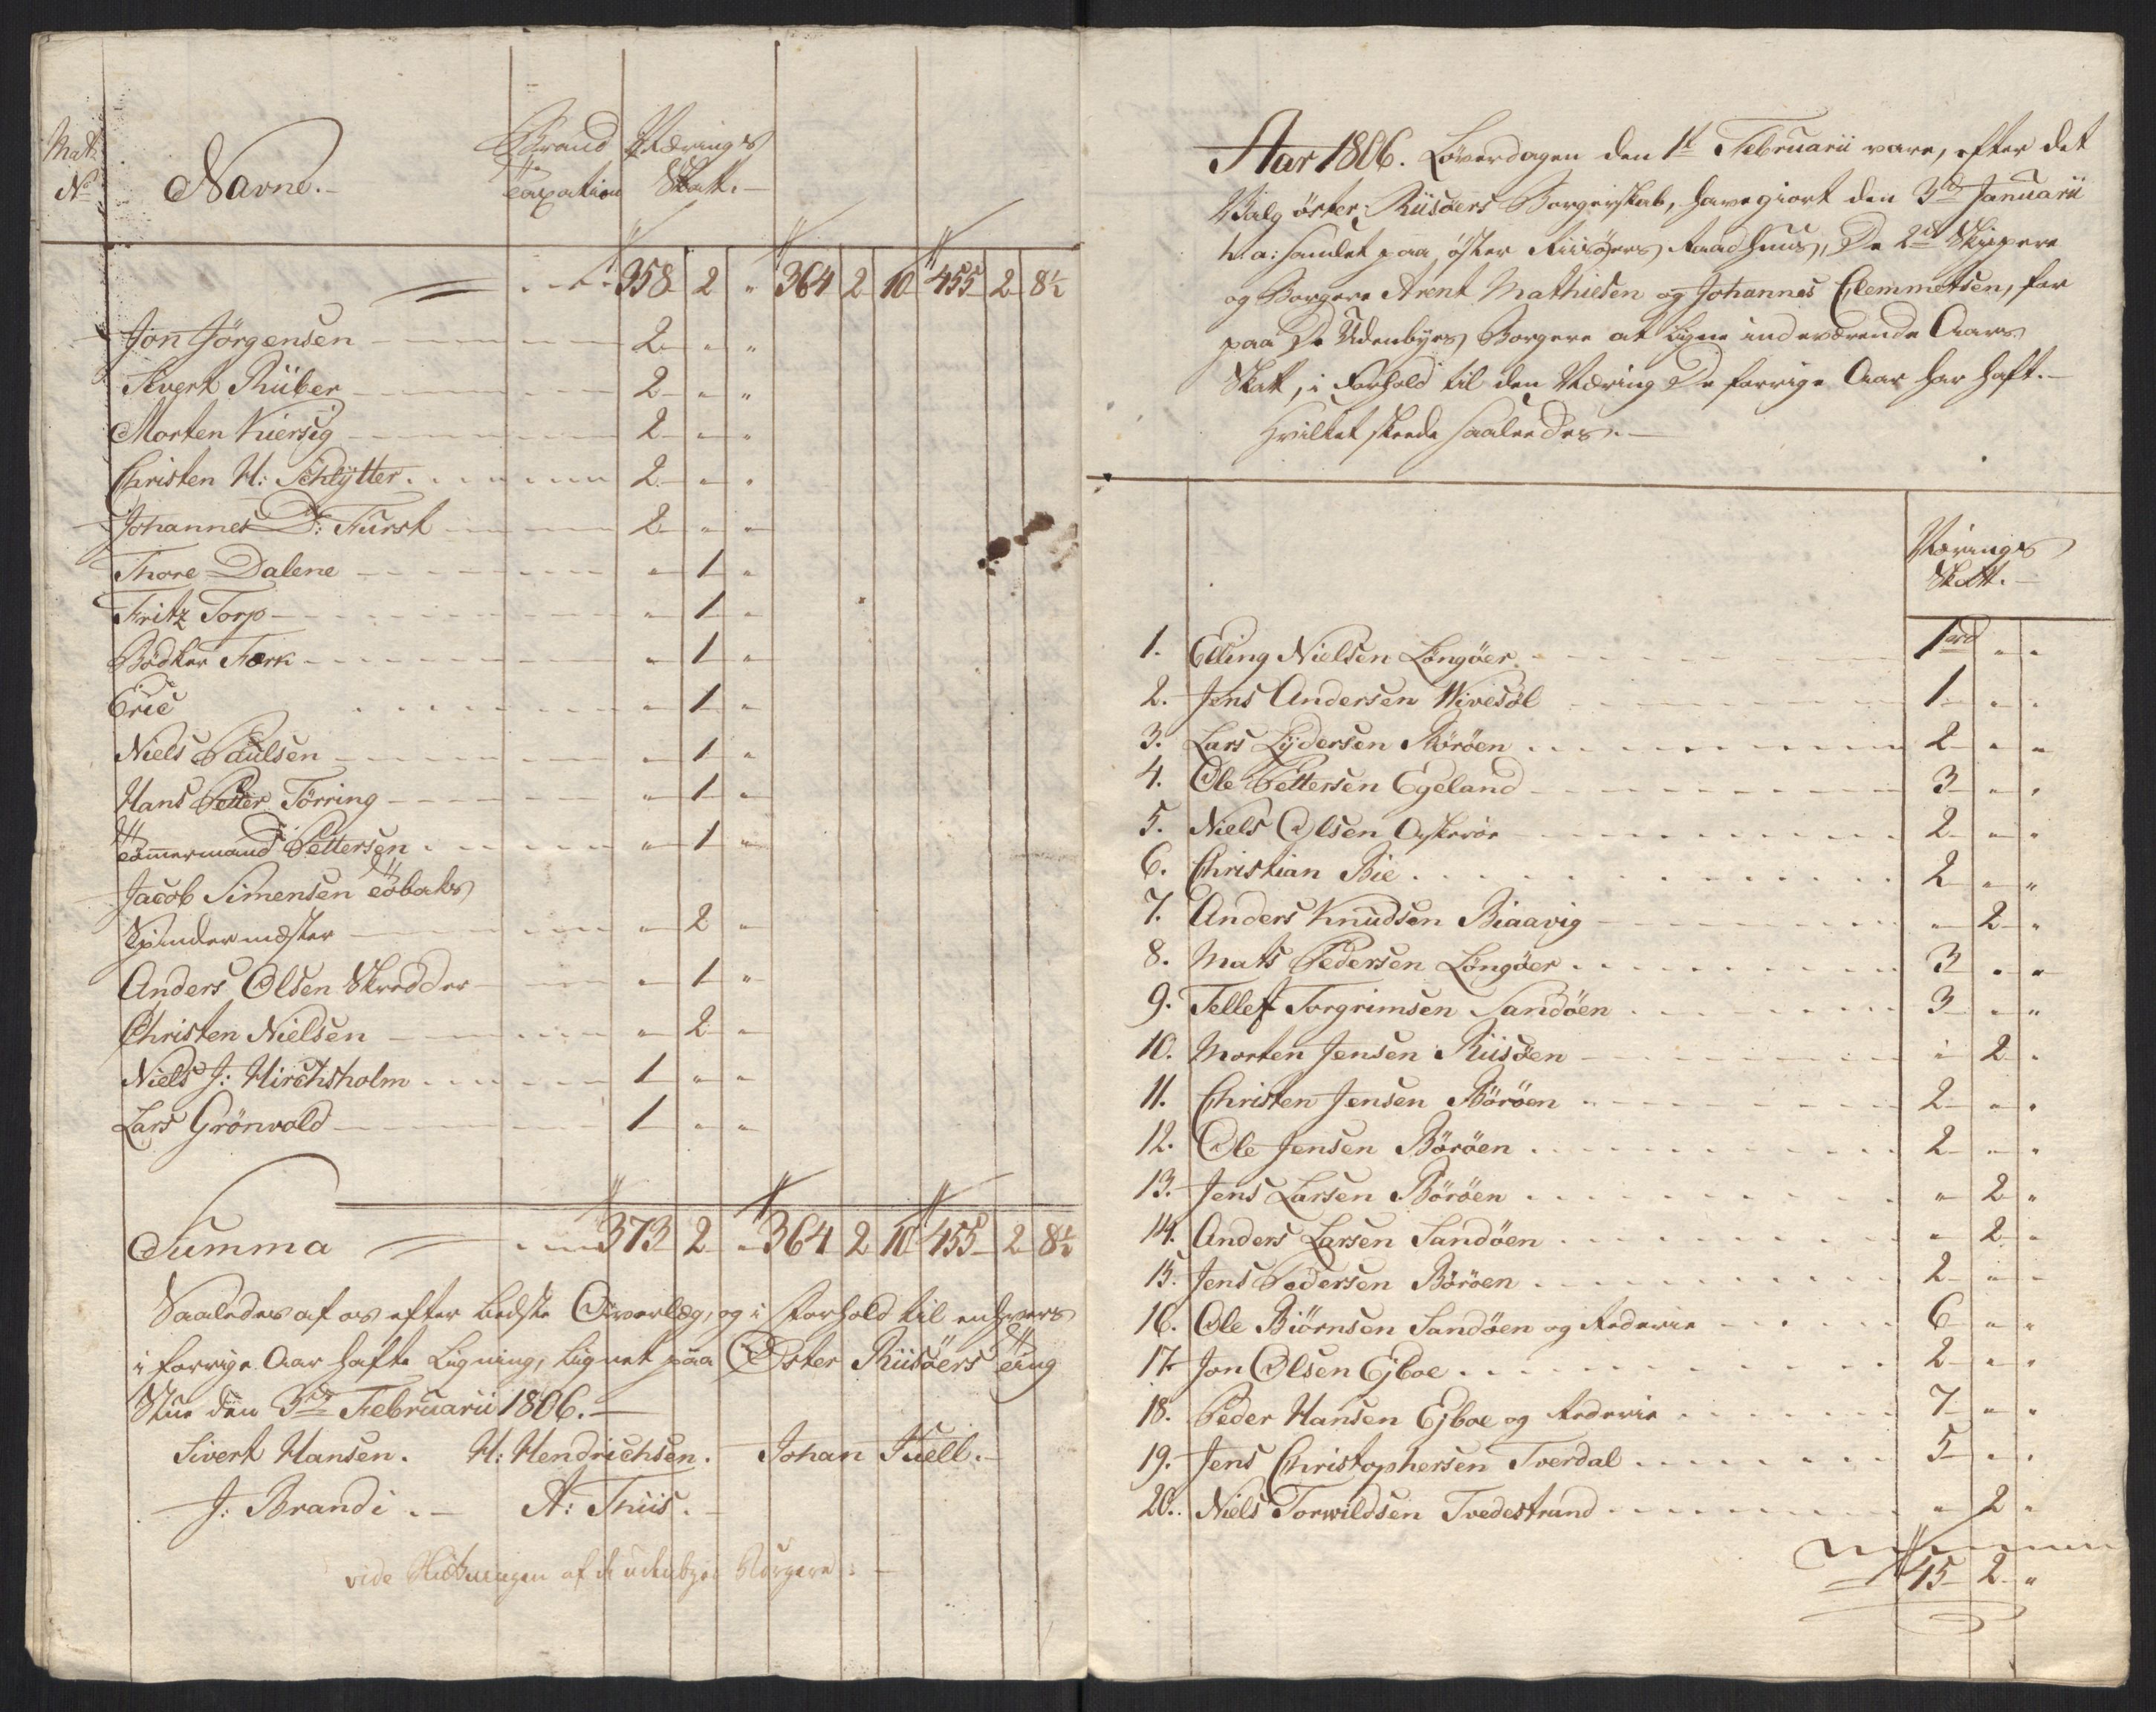 Mat: Brand Nærings
No Navne.- Taxation Skatt.-
358 2 " 364 2 10 455 2 8½
Jon Jörgensen 2 " "
Sivert Rüber 2 " "
Morten Kiersig 2 " "
Christen H: Schlÿtter 2 " "
Johannes D: Furst 2 " "
Thore Dalene " 1 "
Fritz Torp " 1 "
Bödker Færk " 1 "
Eric " 1 "
Niels Paulsen " 1 "
Hans Petter Törring " 1 "
Tömermand Pettersen " 1 "
Jacob Simensen Tobaks
Spindermester " 2 "
Anders Olsen Skredder " 1 "
Christen Nielsen " 2 "
Niels J: Hirschsholm 1 " "
Lars Grönvold 1 " "
Summa 373 2 " 364 2 10 455 2 8½
Saaledes af os efter bedste Overlæg, og i Forhold til enhvers
i forrige Aar hafte Ligning, lignet paa Öster Riisöers Ting
Stue den 3de Februarii 1806.-
Sivert Hansen. H: Hendrichsen. Johan Juell.-
J: Brandi.- A: Thiis.-
vide Ligningen af de udenbÿes Borgere:-
Aar 1806. Löverdagen den 1te Februarii vare, efter det
Valg öster Riisöers Borgerskab, have giort den 3de Januarii
h: a: samlet paa öster Riisöers Raadhuus, De 2de Skippere
og Borgere Arent Mathiesen og Johannes Clemmetsen, for
paa De Udenbyes Borgere at ligne indeværende Aars
Skatt, i Forhold til den Næring De forrige Aar har haft.-
Hvilket skeede saaledes.-
Nærings
Skatt.-
1. Elling Nielsen Longöer 1rd " "
2. Jens Andersen Wivesöl 1 " "
3. Lars Lÿdersen Böröen 2 " "
4. Ole Pettersen Egeland 3 " "
5. Niels Olsen Askeröe 2 " "
6. Christian Bie 2 " "
7. Anders Knudsen Biaavig " 2 "
8. Mats Pedersen Longöer 3 " "
9. Tellef Torgrimsen Sandöen 3 " "
10. Morten Jensen Riisöen " 2 "
11. Christen Jensen Böröen 2 " "
12. Ole Jensen Böröen 2 " "
13. Jens Larsen Böröen " 2 "
14. Anders Larsen Sandöen " 2 "
15. Jens Pedersen Böröen 2 " "
16. Ole Biörnsen Sandöen og Rederie 6 " "
17. Jon Olsen Ejboe 2 " "
18. Peder Hansen Ejboe og Rederie 7 " "
19. Jens Christophersen Tverdal 5 " "
20. Niels Torwildsen Tvedestrand " 2 "
45 2 "